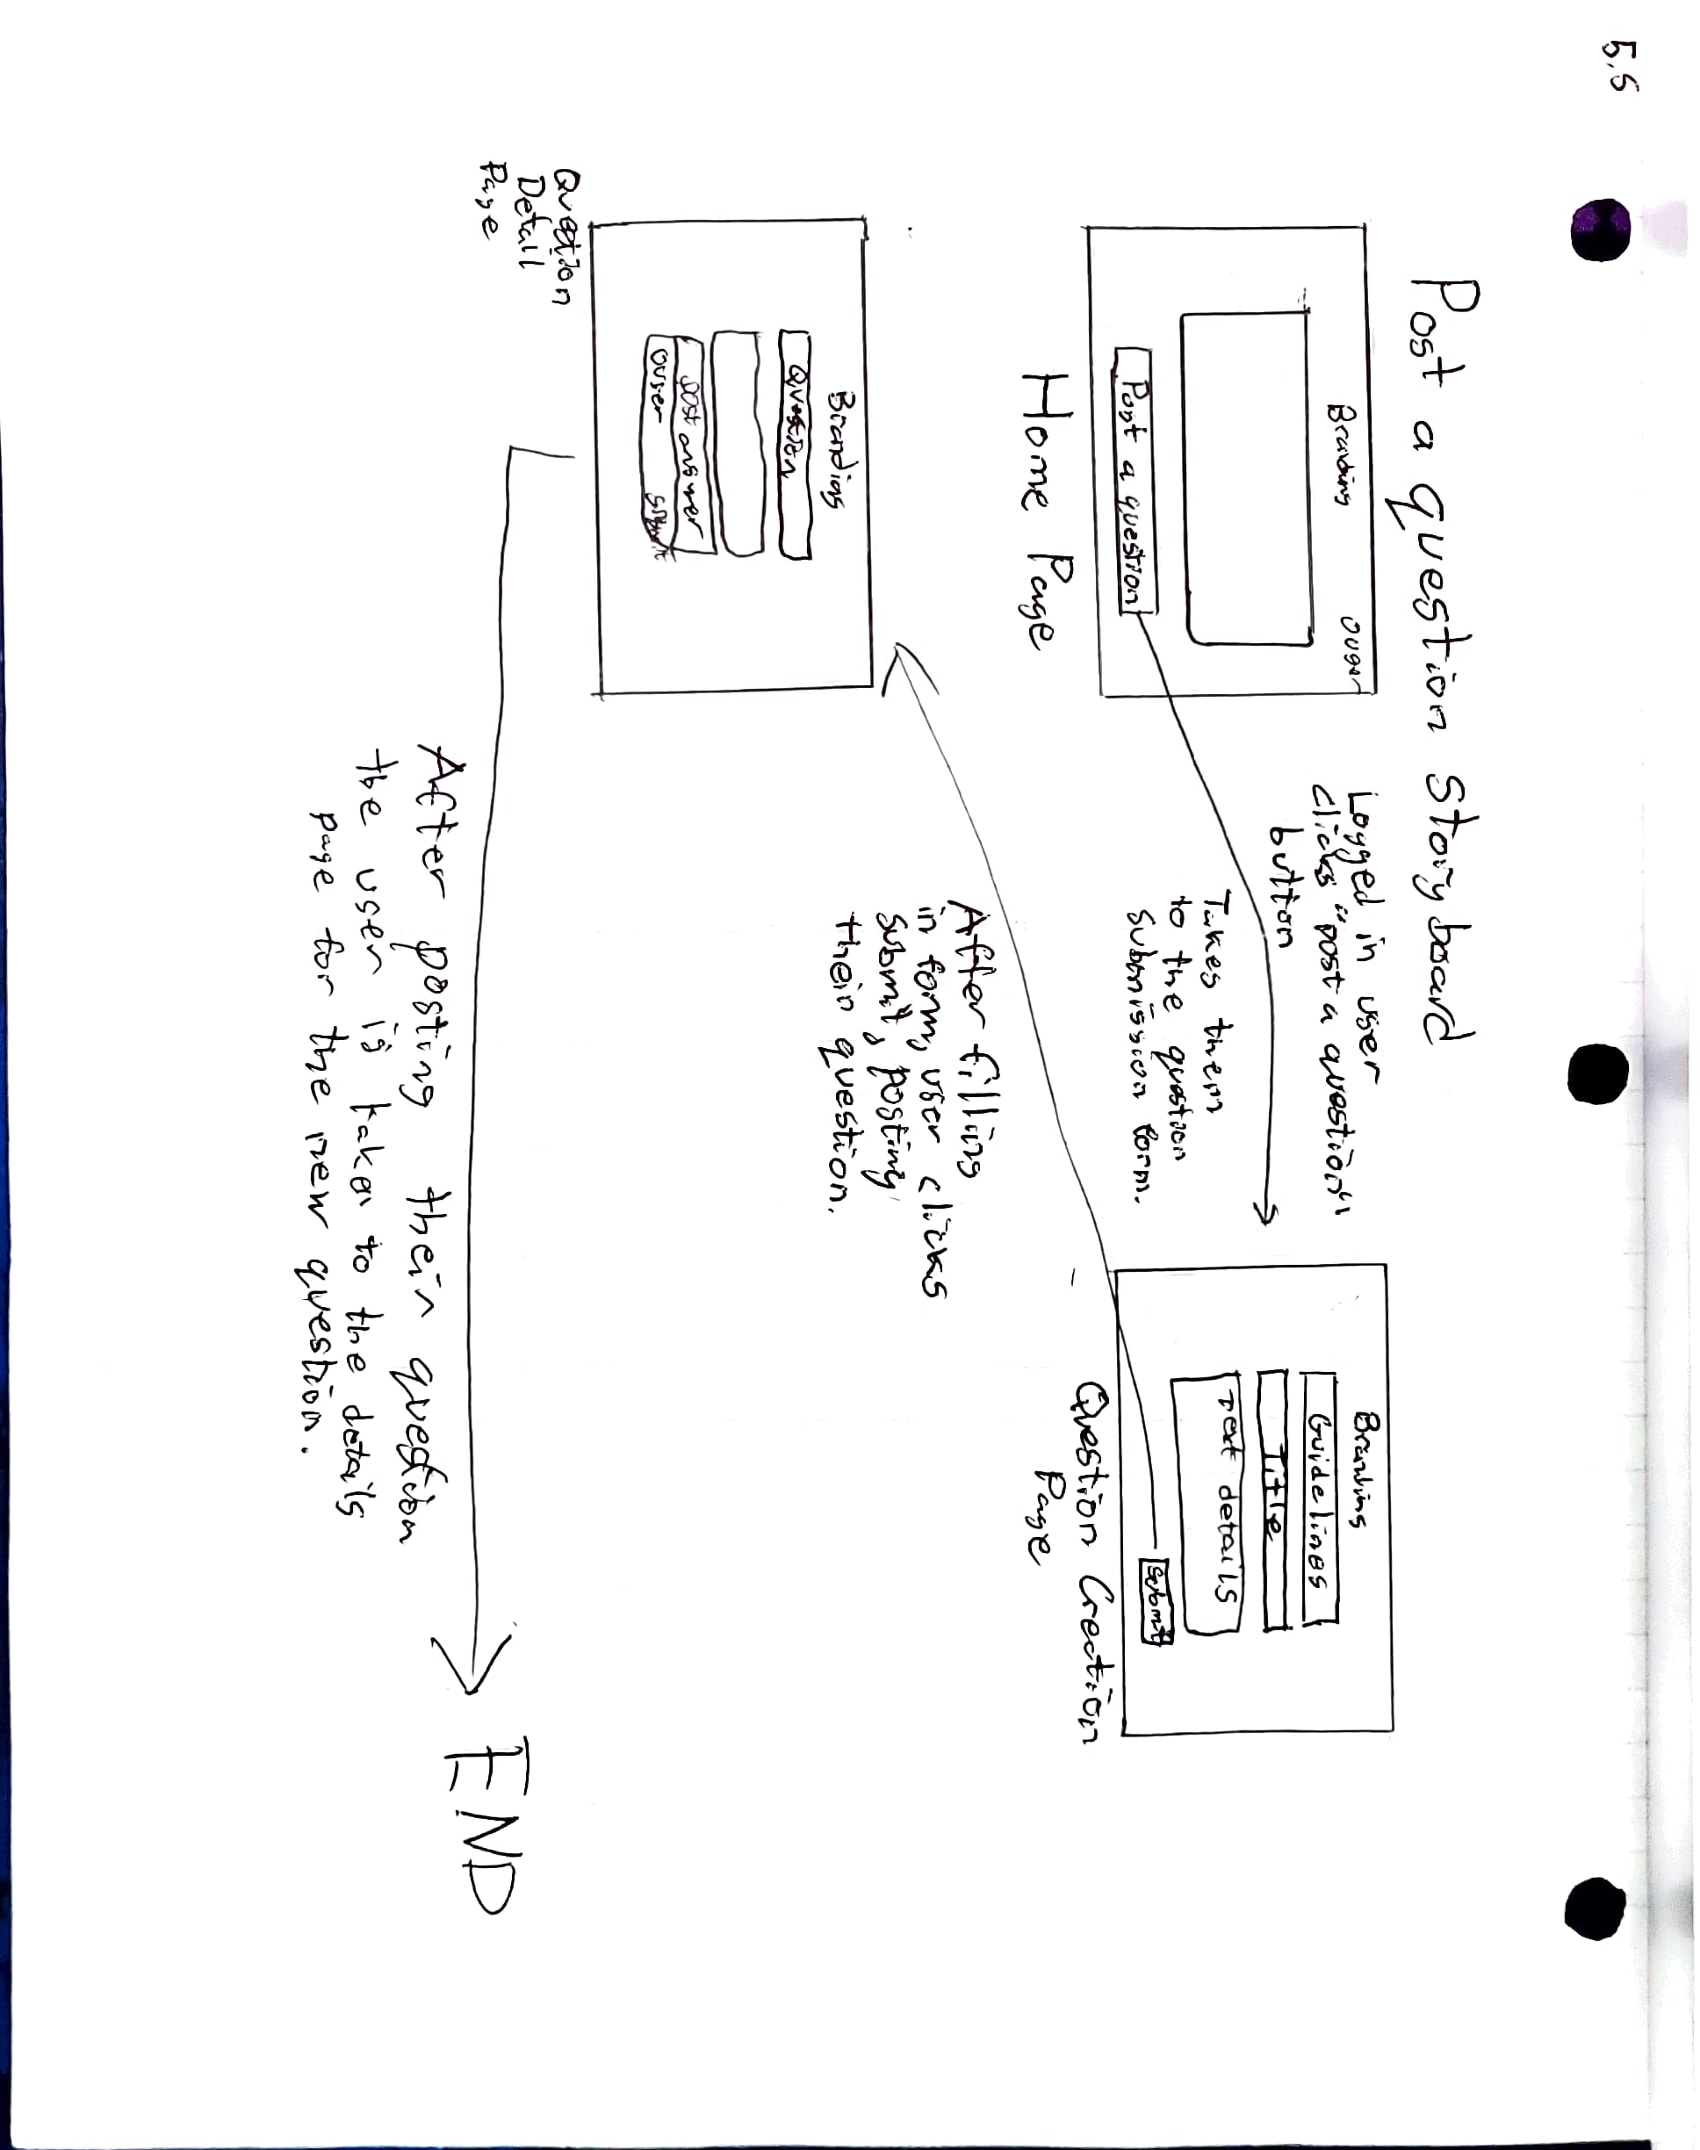 5.5
Post a question storyboard
Branding
O user
Post a question
Home Page
Logged in user
clicks "post a question"
button
Takes them
to the question
submission form.
Branding
Guidelines
Title
Text details
Submit
Question Creation
Page
After filling
in form, user clicks
submit, posting
their question.
Branding
Question
post answer
O user submit
Question
Detail
Page
END
After posting their question
the user is taken to the details
page for the new question.